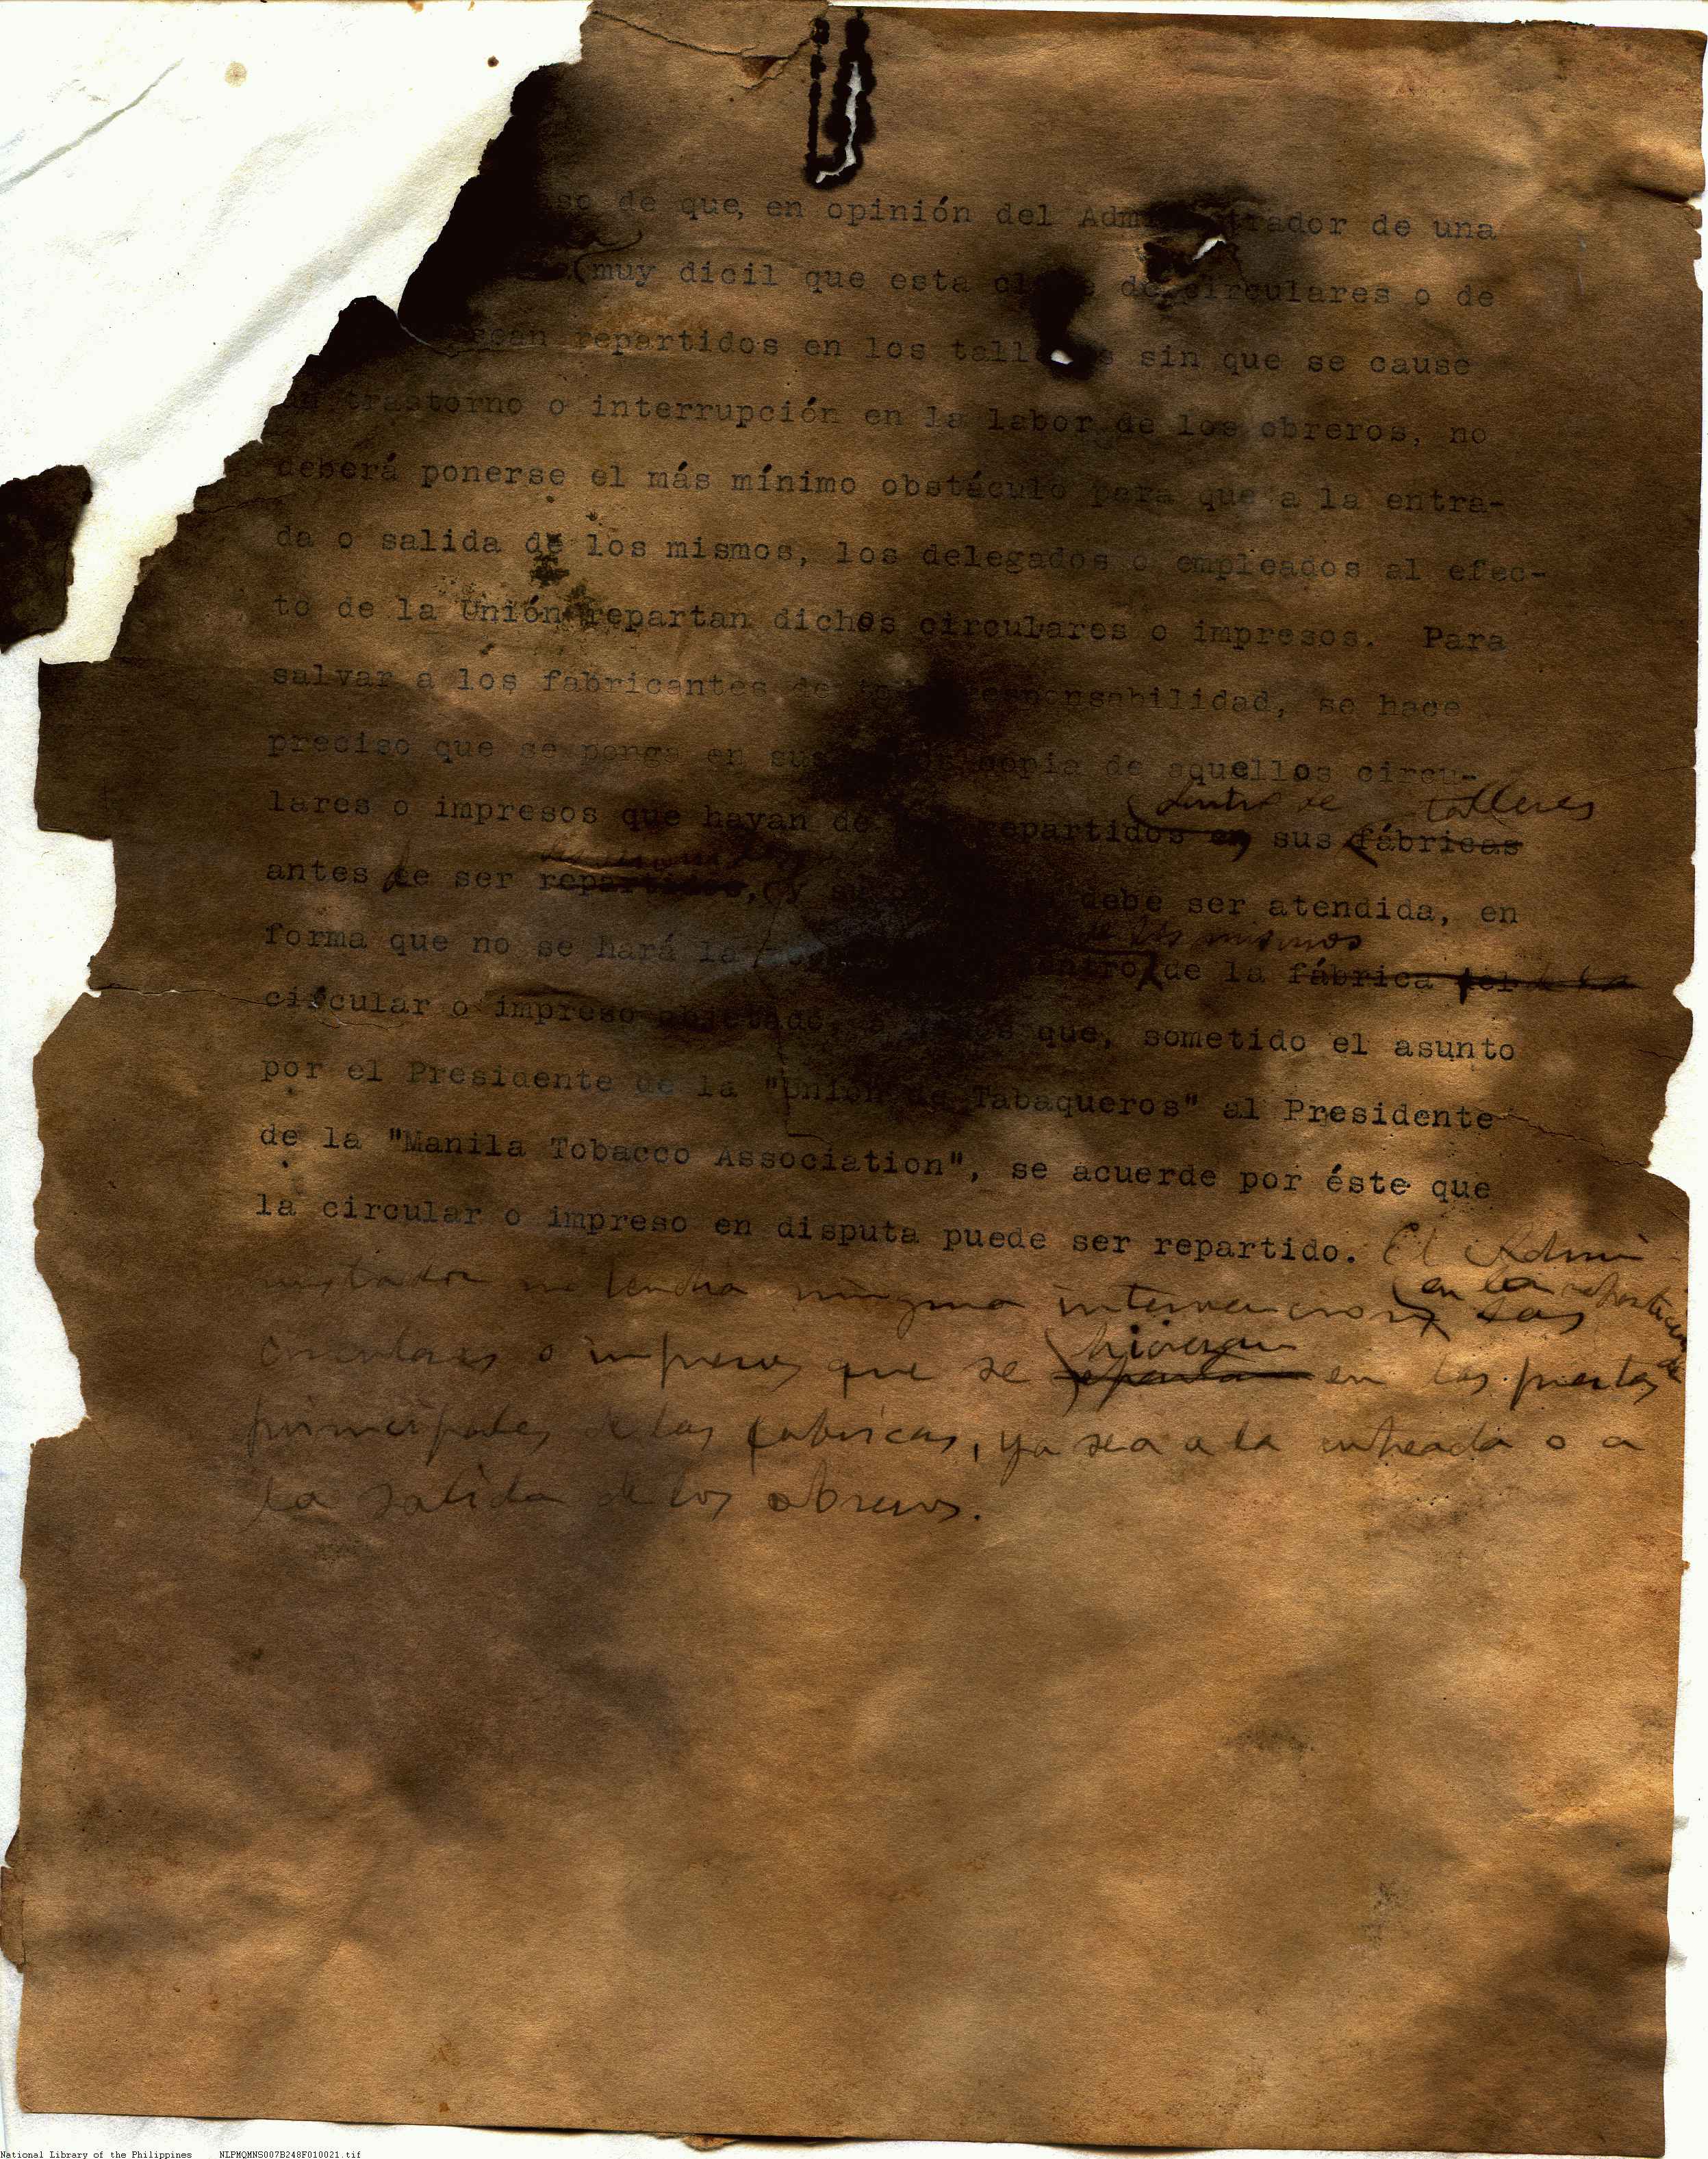 so de que, en opinión del Adm trador de una
muy dicil que esta de circulares o de
sean repartidos en los tall s sin que se cause
un trastorno o interrupción en la labor de los obreros, no
deberá ponerse el más mínimo obstáculo para que a la entra-
da o salida de los mismos, los delegados o empleados al efec-
to de la Unión repartan dichos circulares o impresos. Para
salvar a los fabricantes de responsabilidad, se hace
preciso que se ponga en sus copia de aquellos circu-
dentro de talleres
lares o impresos que hayan de repartidos en sus fábricas
antes de ser repartidos, y debe ser atendida, en
de los mismos
forma que no se hará la dentro de la fábrica
circular o impreso objetado, a que, sometido el asunto
por el Presidente de la "Unión de Tabaqueros" al Presidente
de la "Manila Tobacco Association", se acuerde por éste que
la circular o impreso en disputa puede ser repartido. El Admi
en la reparticion de
nistrador no tendra ninguna intervencion las
hicieran
circulares o impresos que se en las puertas
principales de las fabricas, ya sea a la entrada o a
la salida de los obreros.
National Library of the Philippines NLPMQMNS007B248F010021.tif